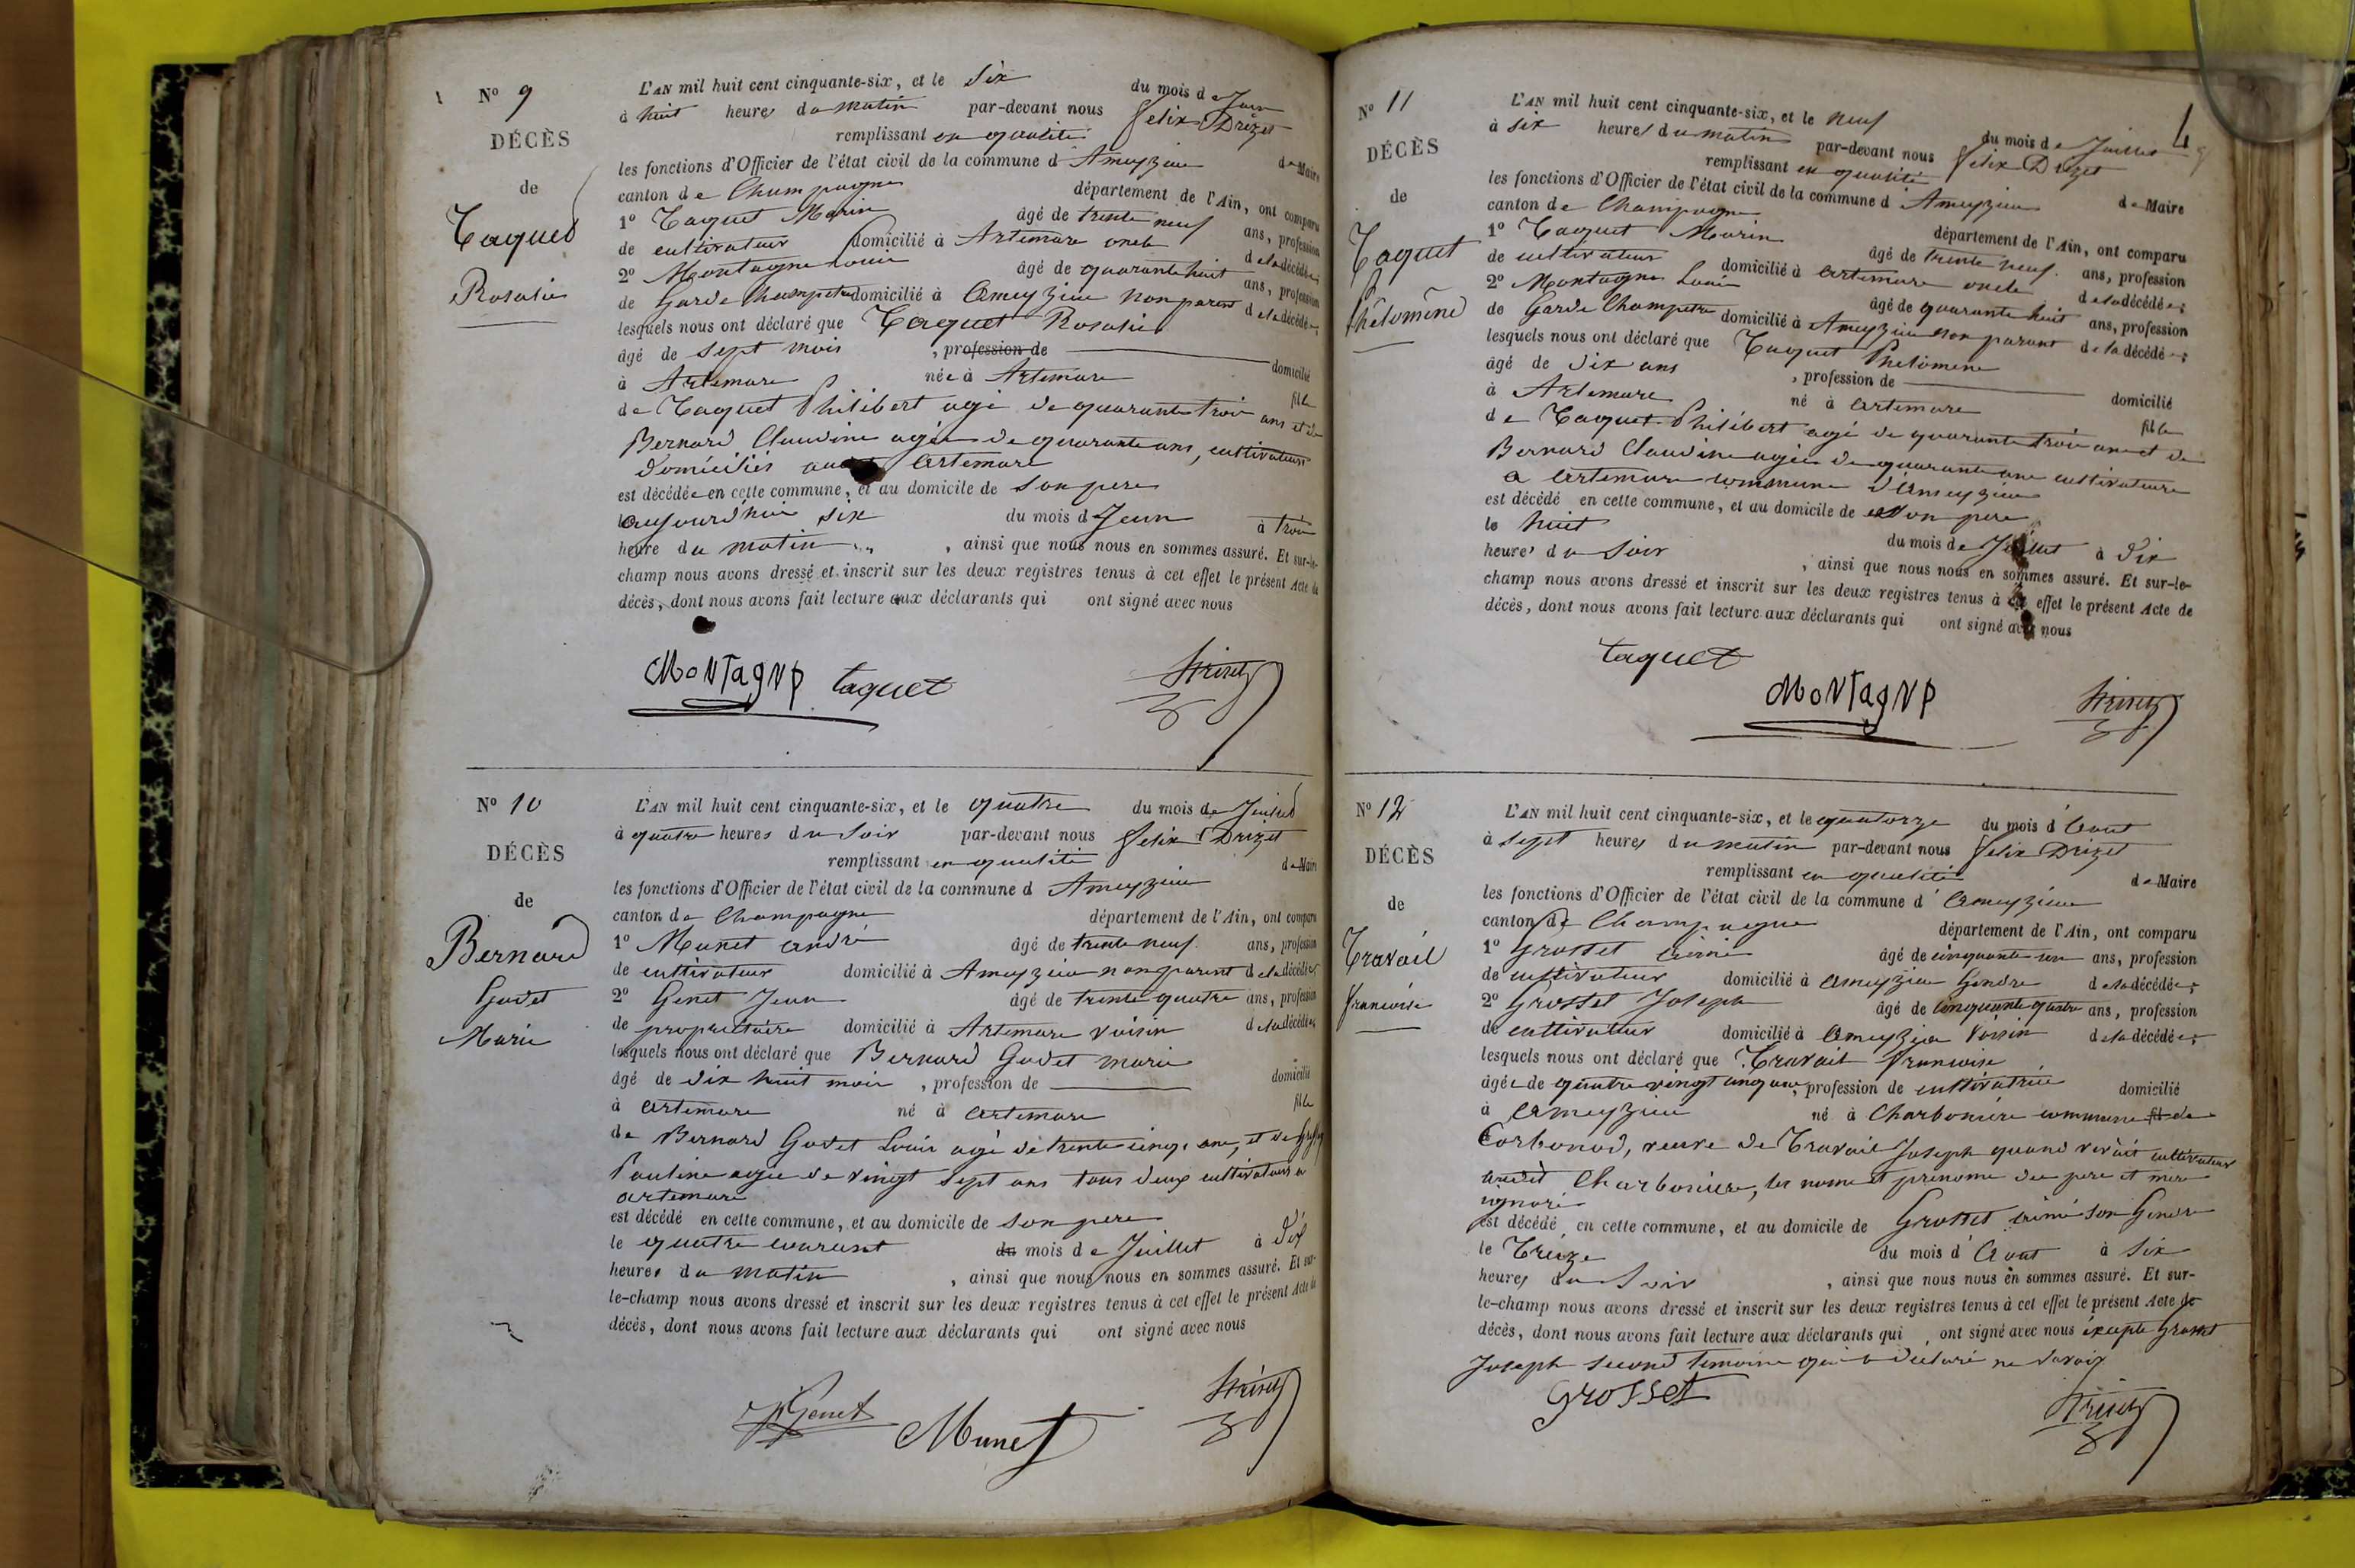 N° 9
DÉCÈS
de
Taquet
Rosalie
L'AN mil huit cent cinquante-six, et le Six du mois de Juin
à huit heures du matin par-devant nous Felix Drizet
remplissant en qualité de Maire
les fonctions d'Officier de l'état civil de la commune d Ameyzieu
canton de Champagne département de l'Ain, ont comparu
1° Taquet Marin âgé de trente neuf ans, profession
de cultivateur domicilié à Artemare oncle de la décédée;
2° Montagne Louis âgé de quarante huit ans, profession
de Garde Champetre domicilié à Ameyzieu non parent de la décédée;
lesquels nous ont déclaré que Taquet Rosalie
âgé de sept mois , profession de domicilié
à Artemare née à Artemare fille
de Taquet Philibert agé de quarante trois ans et de
Bernard Claudine agée de quarante ans, cultivateurs
domiciliés Artemare
est décédée en cette commune, et au domicile de son pere
aujourd'hui six du mois d Juin à trois
heure du matin , ainsi que nous nous en sommes assuré. Et sur-le-
champ nous avons dressé et inscrit sur les deux registres tenus à cet effet le présent Acte de
décès, dont nous avons fait lecture aux déclarants qui ont signé avec nous
MoNTagNe taquet Drizet
N° 10
DÉCÈS
de
Bernard
Godet
Marie
L'AN mil huit cent cinquante-six, et le quatre du mois de Juillet
à quatre heures du soir par-devant nous Felix Drizet
remplissant en qualité de Maire
les fonctions d'Officier de l'état civil de la commune d Ameyzieu
canton de Champagne département de l'Ain, ont comparu
1° Munet andré âgé de trente neuf ans, profession
de cultivateur domicilié à Ameyzieu non parent de la décédée
2° Genet Jean âgé de trente quatre ans, profession
de propriétaire domicilié à Artemare voisin de la décédée
lesquels nous ont déclaré que Bernard Godet marie
âgé de dix huit mois , profession de domicilié
à artemare né à artemare fille
de Bernard Godet Louis agé de trente cinq ans, et de
Pauline agée de vingt sept ans tous deux cultivateurs a
artemare
est décédé en cette commune, et au domicile de son pere
le quatre courant du mois de Juillet à dix
heures du matin , ainsi que nous nous en sommes assuré. Et sur-
le-champ nous avons dressé et inscrit sur les deux registres tenus à cet effet le présent Acte de
décès, dont nous avons fait lecture aux déclarants qui ont signé avec nous
Genet Munet Drizet
N° 11
DÉCÈS
de
Taquet
Phélomène
L'AN mil huit cent cinquante-six, et le neuf du mois de Juillet
à six heures du matin par-devant nous Felix Drizet
remplissant en qualité de Maire
les fonctions d'Officier de l'état civil de la commune d Ameyzieu
canton de Champagne département de l'Ain, ont comparu
1° Taquet Marin âgé de trente neuf ans, profession
de cultivateur domicilié à artemare oncle de la décédée;
2° Montagne Louis âgé de quarante huit ans, profession
de Garde Champetre domicilié à Ameyzieu non parent de la décédée;
lesquels nous ont déclaré que Taquet Phelomene
âgé de dix ans , profession de domicilié
à Artemare né à artemare fille
de Taquet Philibert agé de quarante trois ans et de
Bernard Claudine agée de quarante ans cultivateurs
a artemare commune d'Ameyzieu
est décédé en cette commune, et au domicile de son pere
le huit du mois de Juillet à dix
heures du soir , ainsi que nous nous en sommes assuré. Et sur-le-
champ nous avons dressé et inscrit sur les deux registres tenus à cet effet le présent Acte de
décès, dont nous avons fait lecture aux déclarants qui ont signé avec nous
taquet
MoNTagNe Drizet
N° 12
DÉCÈS
de
Travail
francoise
L'AN mil huit cent cinquante-six, et le quatorze du mois d'Aout
à sept heures du matin par-devant nous felix Drizet
remplissant en qualité de Maire
les fonctions d'Officier de l'état civil de la commune d'Ameyzieu
canton de Champagne département de l'Ain, ont comparu
1° Grosset aimé âgé de cinquante un ans, profession
de cultivateur domicilié à ameyzieu Gendre de la décédée;
2° Grosset Joseph âgé de cinquante quatre ans, profession
de cultivateur domicilié à ameyzieu voisin de la décédée;
lesquels nous ont déclaré que Travail francoise
âgée de quatre vingt cinq ans, profession de cultivatrice domicilié
à ameyzieu né à Charboniére commune de
Corbonod, veuve de Travail Joseph quand vivait cultivateur
audit Charboniere, les noms et prenoms des pere et mere
ignorés
est décédé en cette commune, et au domicile de Grosset aimé son Gendre
le Treize du mois d'Aout à six
heures du soir , ainsi que nous nous en sommes assuré. Et sur-
le-champ nous avons dressé et inscrit sur les deux registres tenus à cet effet le présent Acte de
décès, dont nous avons fait lecture aux déclarants qui ont signé avec nous éxcepté Grosset
Joseph second temoin qui a déclaré ne savoir
Grosset Drizet